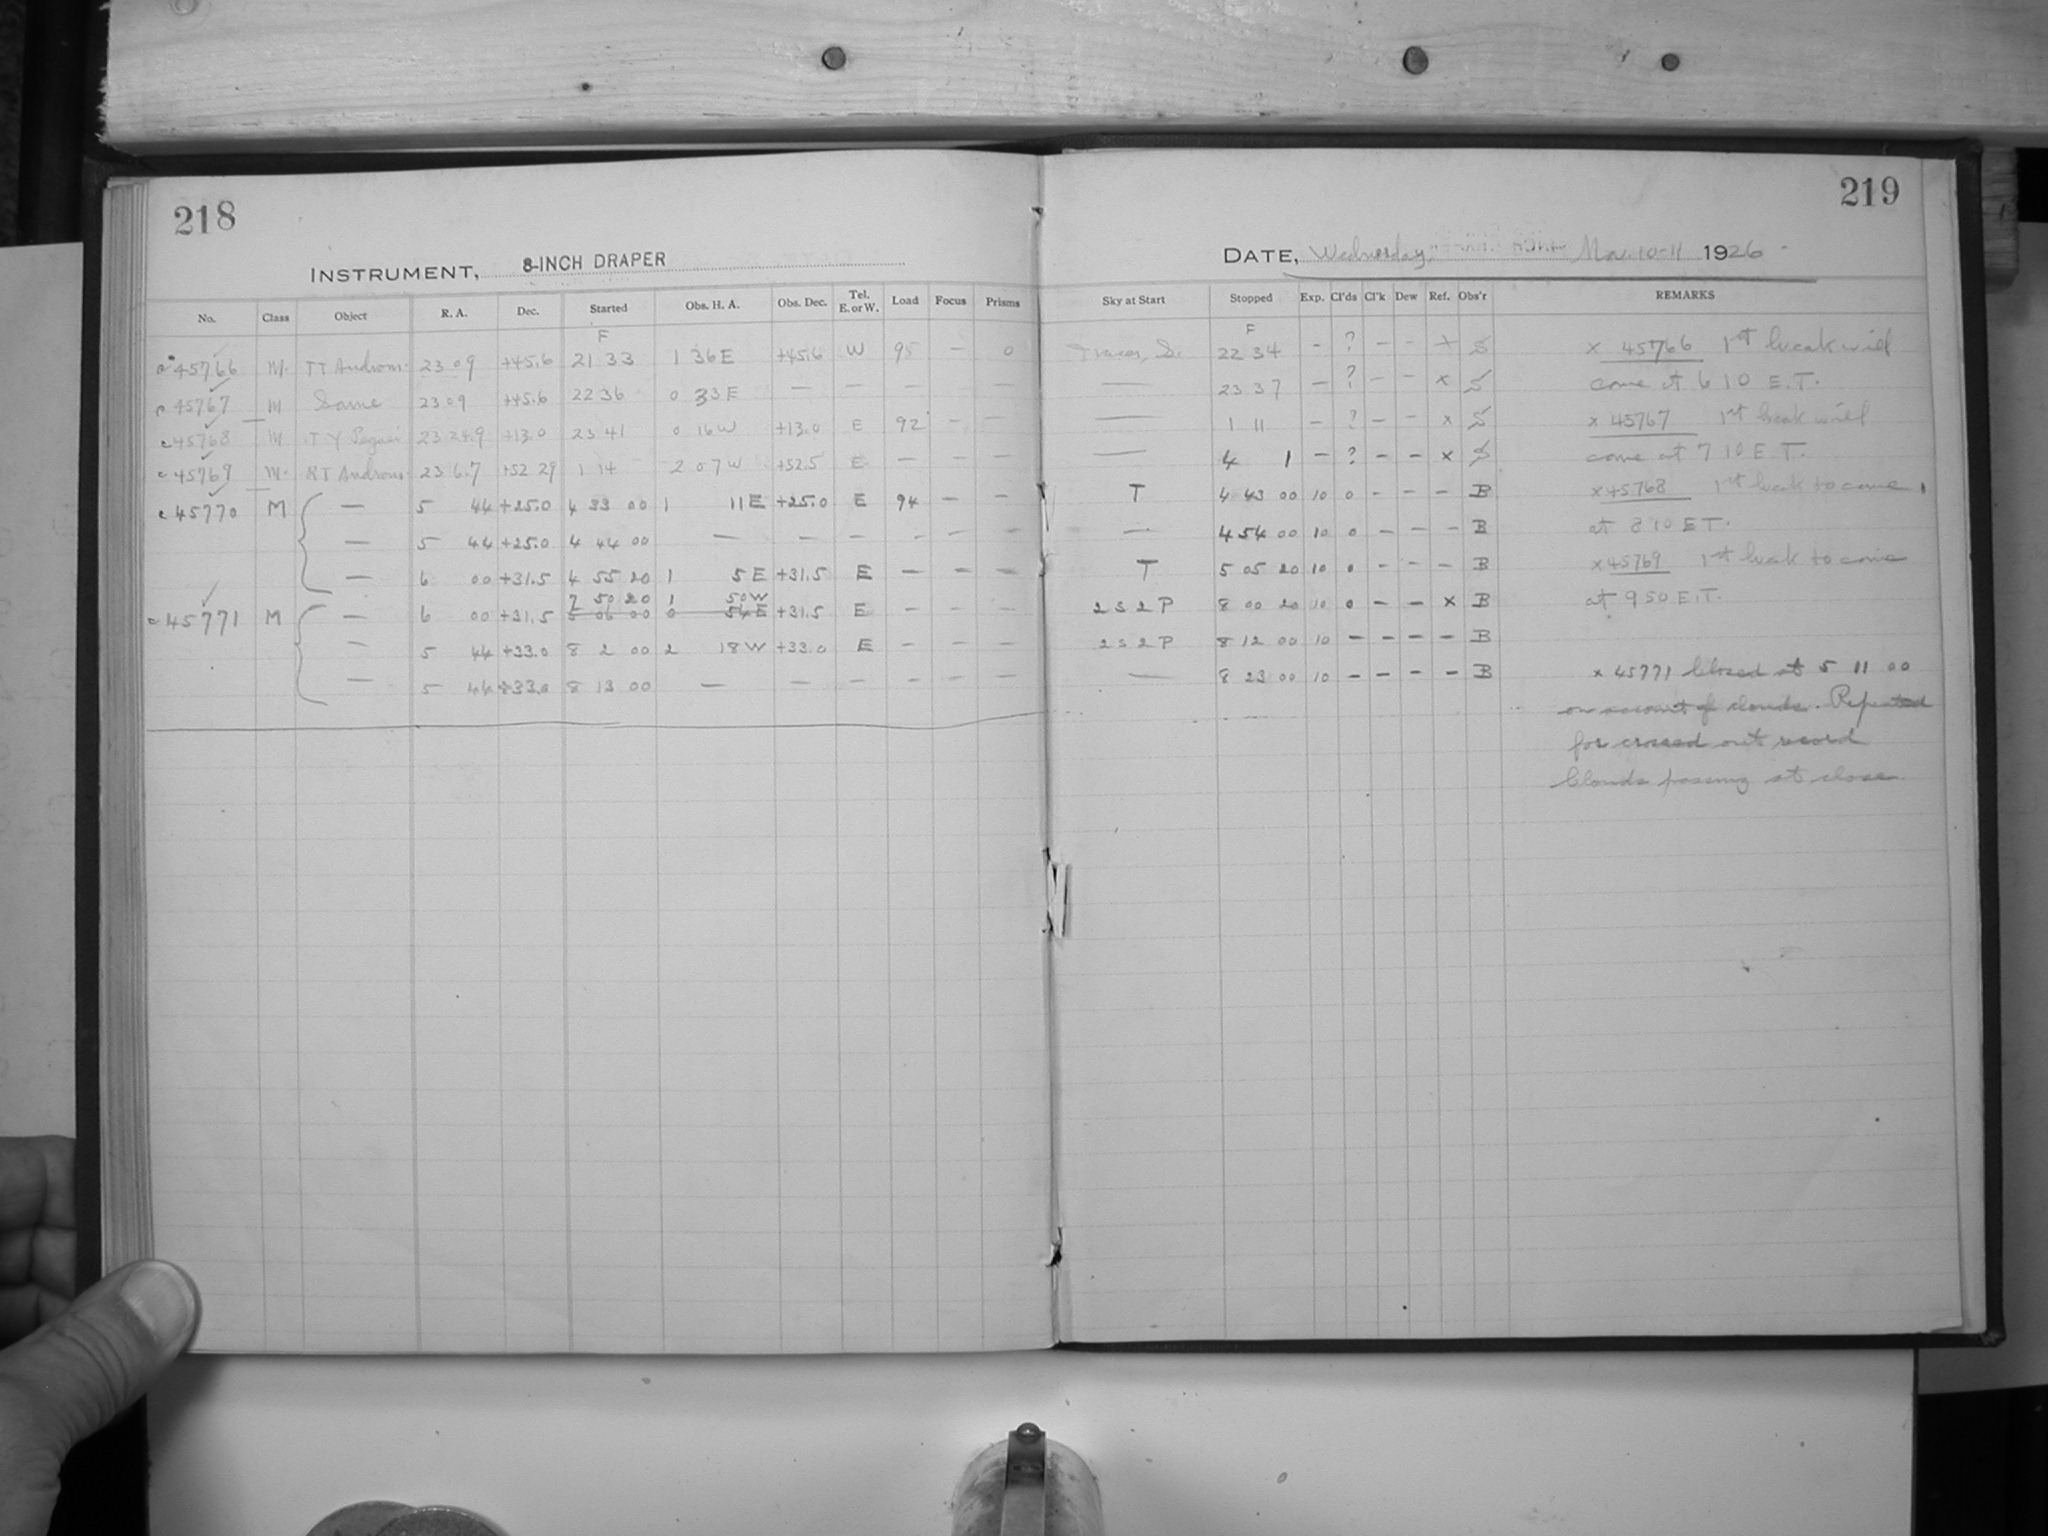 218
INSTRUMENT, 8-INCH DRAPER
No. Class Object R. A. Dec. Started Obs. H. A. Obs. Dec. Tel. E. or W. Load Focus Prisms
F
c 45766 M. TT Androm. 23 09 +45.6 21 33 1 36 E +45.6 W 95 — 0
c 45767 M Same 23 09 +45.6 22 36 0 33 E — — — — —
c 45768 M TY Pegasi 23 24.9 +13.0 23 41 0 16 W +13.0 E 92 — —
c 45769 M. RT Androm. 23 6.7 +52 29 1 14 2 07 W +52.5 E — — —
c 45770 M — 5 44 +25.0 4 33 00 1 11 E +25.0 E 94 — —
— 5 44 +25.0 4 44 00 — — — - — —
— 6 00 +31.5 4 55 20 1 5 E +31.5 E — — —
7 50 20 1 50 W
c 45771 M — 6 00 +31.5 5 06 00 0 54 E +31.5 E — — —
— 5 44 +33.0 8 2 00 2 18 W +33.0 E — — —
— 5 44 +33.0 8 13 00 — — — — — —
219
DATE, Wednesday, 10-11 1926
Sky at Start Stopped Exp. Cl'ds Cl'k Dew Ref. Obs'r REMARKS
F
22 34 — ? — — x S x 45766 1st break will
— 23 37 — ? — — x S come at 6 10 E.T.
— 1 11 — ? — — x S x 45767 1st break will
— 4 1 — ? — — x S come at 7 10 E.T.
T 4 43 00 10 0 - - - B x 45768 1st break to come
— 4 54 00 10 0 — — - B at 8 10 E.T.
T 5 05 20 10 0 - - - B x 45769 1st break to come
2 S 2 P 8 00 20 10 0 — — x B at 9 50 E.T.
2 S 2 P 8 12 00 10 — — — — B
— 8 23 00 10 — — — — B x 45771 Closed at 5 11 00
on account of clouds. Repeated
for crossed out record
Clouds passing at close